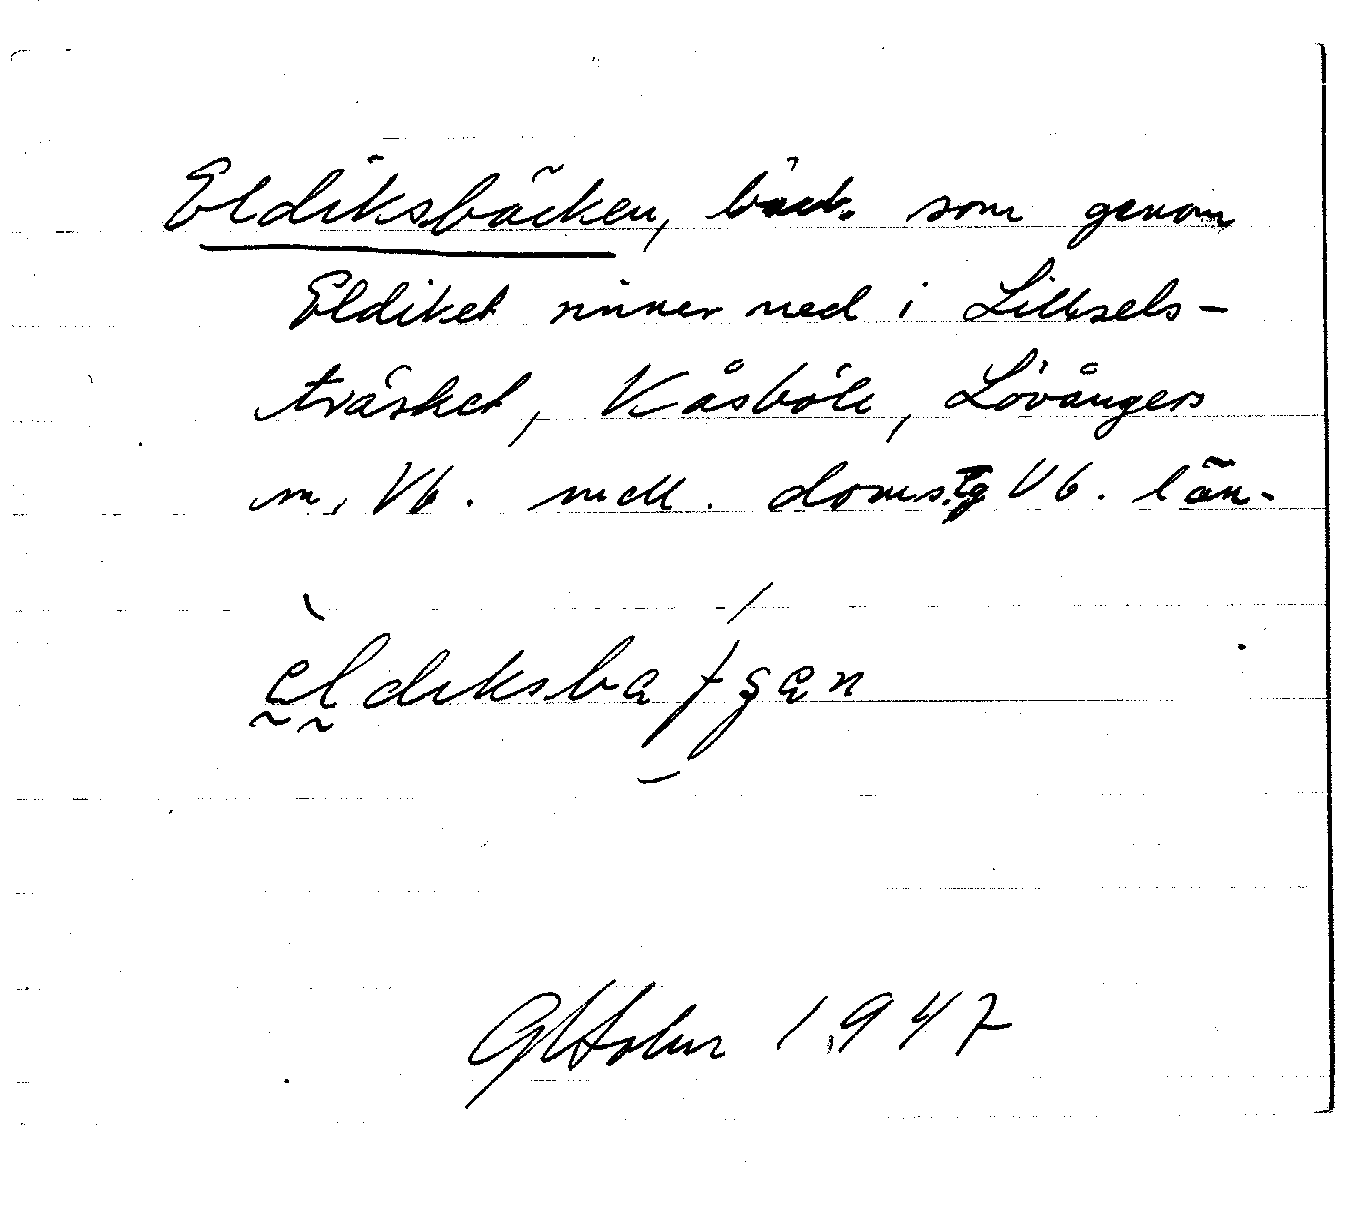 Eldiksbäcken, bäck som genom
Eldiket rinner ned i Lillsels-
träsket, Kåsböle, Lövångers
m, Vb. mell. doms.g Vb. län.
èldiksba
1947